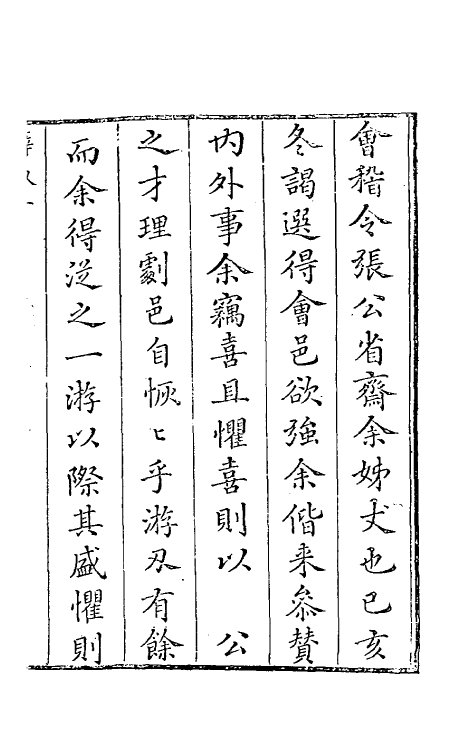 會稽令張公省齋余姊丈也己亥
冬謁選得會邑欲強余偕来叅賛
内外事余竊喜且懼喜則以 公
之才理劇邑自恢〻乎游刃有餘
而余得從之一游以際其盛懼則